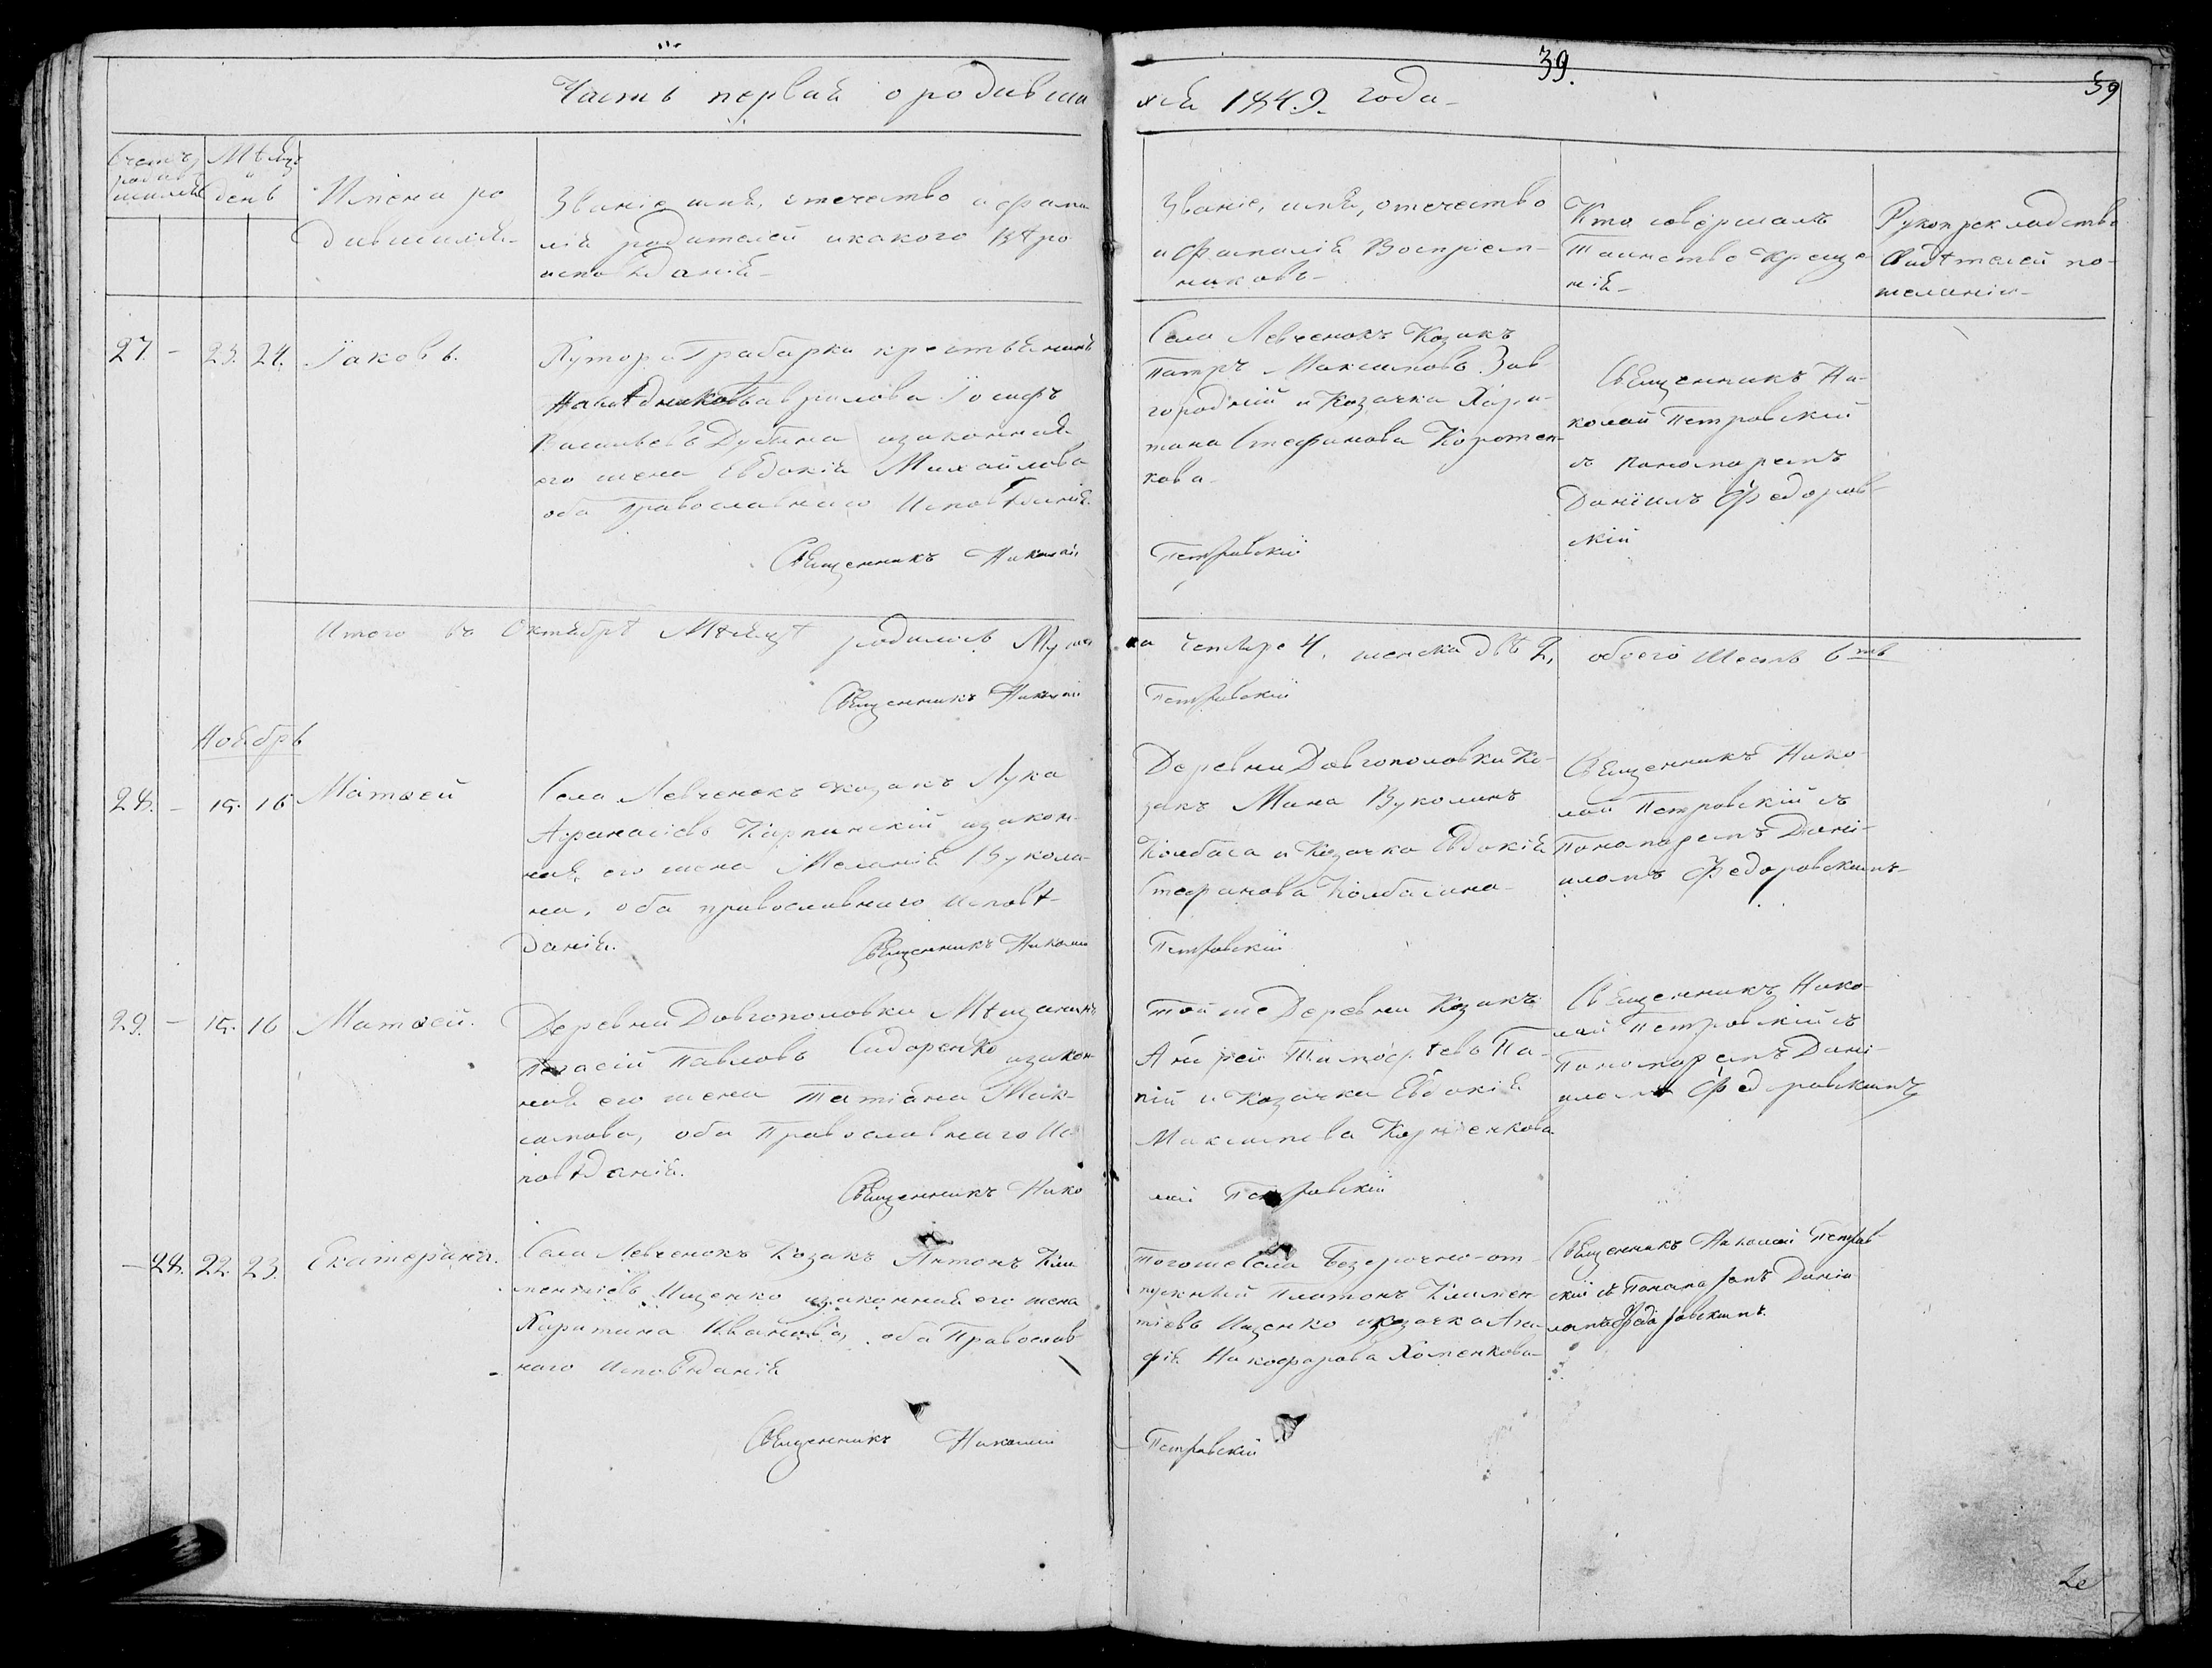 39.
39
Часть первая о родивша
хся 1849. года
Счетъ родив шихся
Мѣсяцъ и день
Имена ро
дившихся
Званіе, имя, отечество и фами
лія родителей и какого вѣро
исповѣданія
Званіе, имя, отечество
и фамилія Воспріем-
никовъ
Кто совершалъ
Таинство Креще
нія
Рукоприкладство
Свидѣтелей по
желанію
27. - 23. 24. Іаковъ.
Хутора Грабарки крестьянинъ
Наслѣдниковъ Гаврилова Іосифъ
Васильевъ Дубина и законная
его жена Евдокія Михайлова
оба православнаго Исповѣданія.
Священникъ Николай
Села Левченокъ Козакъ
Петръ Максимовъ Зав
городній и Козачка Хари-
тина Стефанова Коротен-
кова
Петровскій
Священникъ Ни-
колай Петровскій
съ пономаремъ
Даніилъ Федоров
скій
Итого въ Октябрѣ Мѣсяцѣ родилось Муж
ска четыре 4. женска двѣ 2, обоего шесть 6ть
Священникъ Николай
Петровскій
Ноябрь
28. - 15. 16 Матѳей
Села Левченокъ козакъ Лука
Афанасіевъ Карпинскій и закон-
ная его жена Меланія Вукола-
на, оба православнаго исповѣ-
данія.
Священникъ Николай
Деревни Довгополовки Ко-
закъ Мина Вуколинъ
Колбаса и Козачка Евдокія
Стефанова Колбасина
Петровскій
Священникъ Нико
лай Петровскій съ
Пономаремъ Дані-
иломъ Федоровскимъ
29. - 15. 16 Матѳей.
Деревни Довгополовки Мѣщанинъ
Павловъ Сидоренко и закон
ная его жена Татіана Мак-
симова, оба Православнаго Ис-
повѣданія.
Священникъ Нико
Той же Деревни Козакъ
Андрей Тимофѣевъ Па-
пій и Козачка Евдокія
Максимова Корніенкова
лай Петровскій
Священникъ Нико
лай Петровскій съ
Пономаремъ Дані-
иломъ Федоровскимъ
- 28. 22. 23. Екатерина.
Села Левченокъ Козакъ Антонъ Кли
ментіевъ Ищенко и законная его жена
Харитина Иванова, оба Православ
наго Исповѣданія
Священникъ Николай
Того же Села Безсрочно-от-
пускный Платонъ Климен-
тіевъ Ищенко и козачка Ага-
фія Никофорова Хоменкова
Петровскій
Священникъ Николай Петров
скій съ Пономаремъ Даніи
ломъ Федоровскимъ